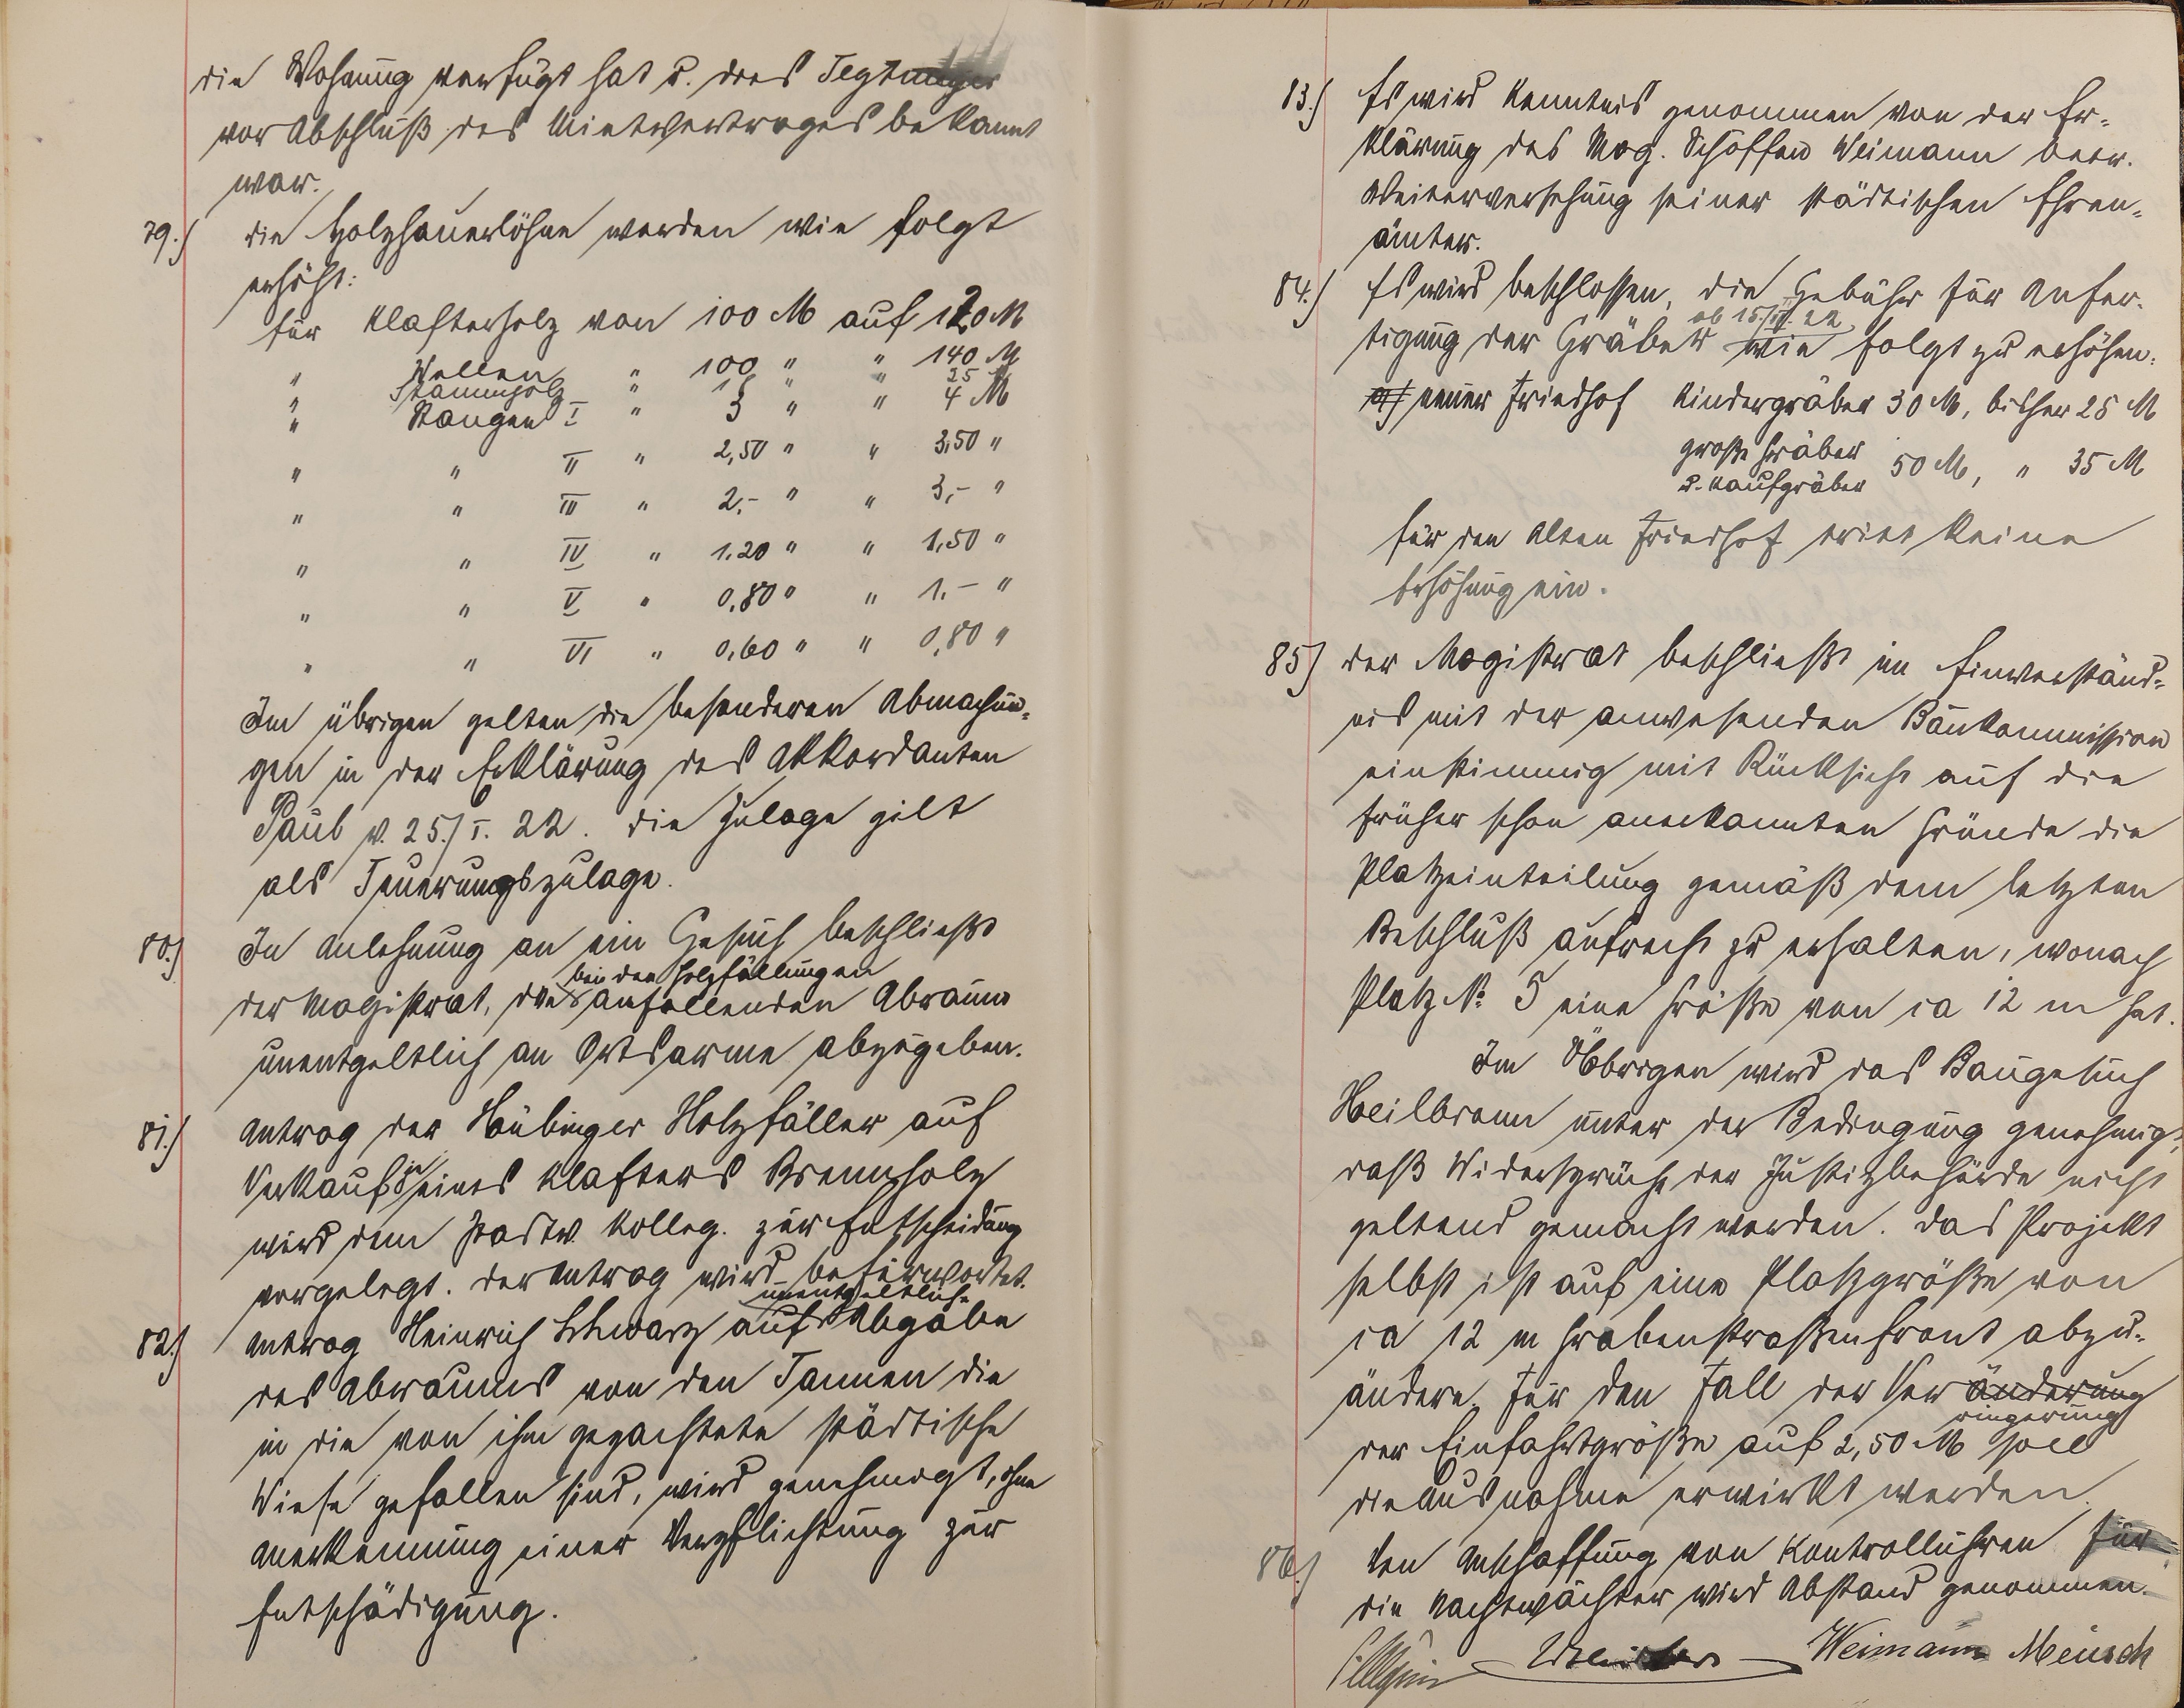 die Wohnung verfügt hat u. dies Tegtmeyer
vor Abschluß des Mietvertrages bekannt
war.
79.) die Holzhauerlöhne werden wie folgt
erhöht:
für Klafterholz von 100 M auf 120 M
" Wellen " 100 " " 140 M
" Stammholz " 18 " " 25
" Stangen I " 3 " " 4 M
" " II " 2,50 " " 3,50 "
" " III " 2,- " " 3,- "
" " IV " 1.20 " " 1,50 "
" " V " 0,80 " " 1.- "
" " VI " 0,60 " " 0,80 "
Im übrigen gelten die besonderen Abmachun-
gen in der Erklärung des Akkordanten
Paul v. 25./I. 22. die Zulage gilt
als Teuerungszulage.
80.) In Anlehnung an ein Gesuch beschließt
bei den Holzfällungen
der Magistrat, das anfallenden Abraum
unentgeltlich an Ortsarme abzugeben.
81.) Antrag der Hübinger Holzfäller auf
Verkauf je eines Klafters Brennholz
wird dem Stadtv. Kolleg. zur Entscheidung
vorgelegt. der Antrag wird befürwortet.
unentgeltliche
82.) Antrag Heinrich Schwarz auf Abgabe
des Abraums von den Tannen die
in die von ihm gepachtete städtische
Wiese gefallen sind, wird genehmigt, ohne
Anerkennung einer Verpflichtung zur
Entschädigung.
83.) Es wird Kenntnis genommen von der Er-
klärung des Mag. Schöffen Weimann betr.
Weiterversehung seiner städtischen Ehren-
ämter.
84.) Es wird beschlossen, die Gebühr für Anfer-
ab 15./II. 22
tigung der Gräber wie folgt zu erhöhen:
a) neuer Friedhof Kindergräber 30 M, bisher 25 M
große Gräber
u. Kaufgräber 50 M, " 35 M
für den alten Friedhof tritt keine
Erhöhung ein.
85) der Magistrat beschließt im Einverständ-
nis mit der anwesenden Baukommission
einstimmig mit Rücksicht auf die
früher schon anerkannten Gründe die
Platzeinteilung gemäß dem letzten
Beschluß aufrecht zu erhalten, wonach
Platz № 5 eine Größe von ca 12 m hat.
Im Übrigen wird das Baugesuch
Heilbronn unter der Bedingung genehmigt,
daß Widersprüche der Justizbehörde nicht
geltend gemacht werden. das Projekt
selbst ist auf eine Platzgröße von
ca 12 m Grabenstraßenfront abzu-
ändern. Für den Fall der Veränderung
ringerung
der Einfahrtgröße auf 2,50 M soll
die Ausnahme erwirkt werden.
86.) Von Anschaffung von Kontrolluhren für
die Nachtwächter wird Abstand genommen.
Weimann Meusch